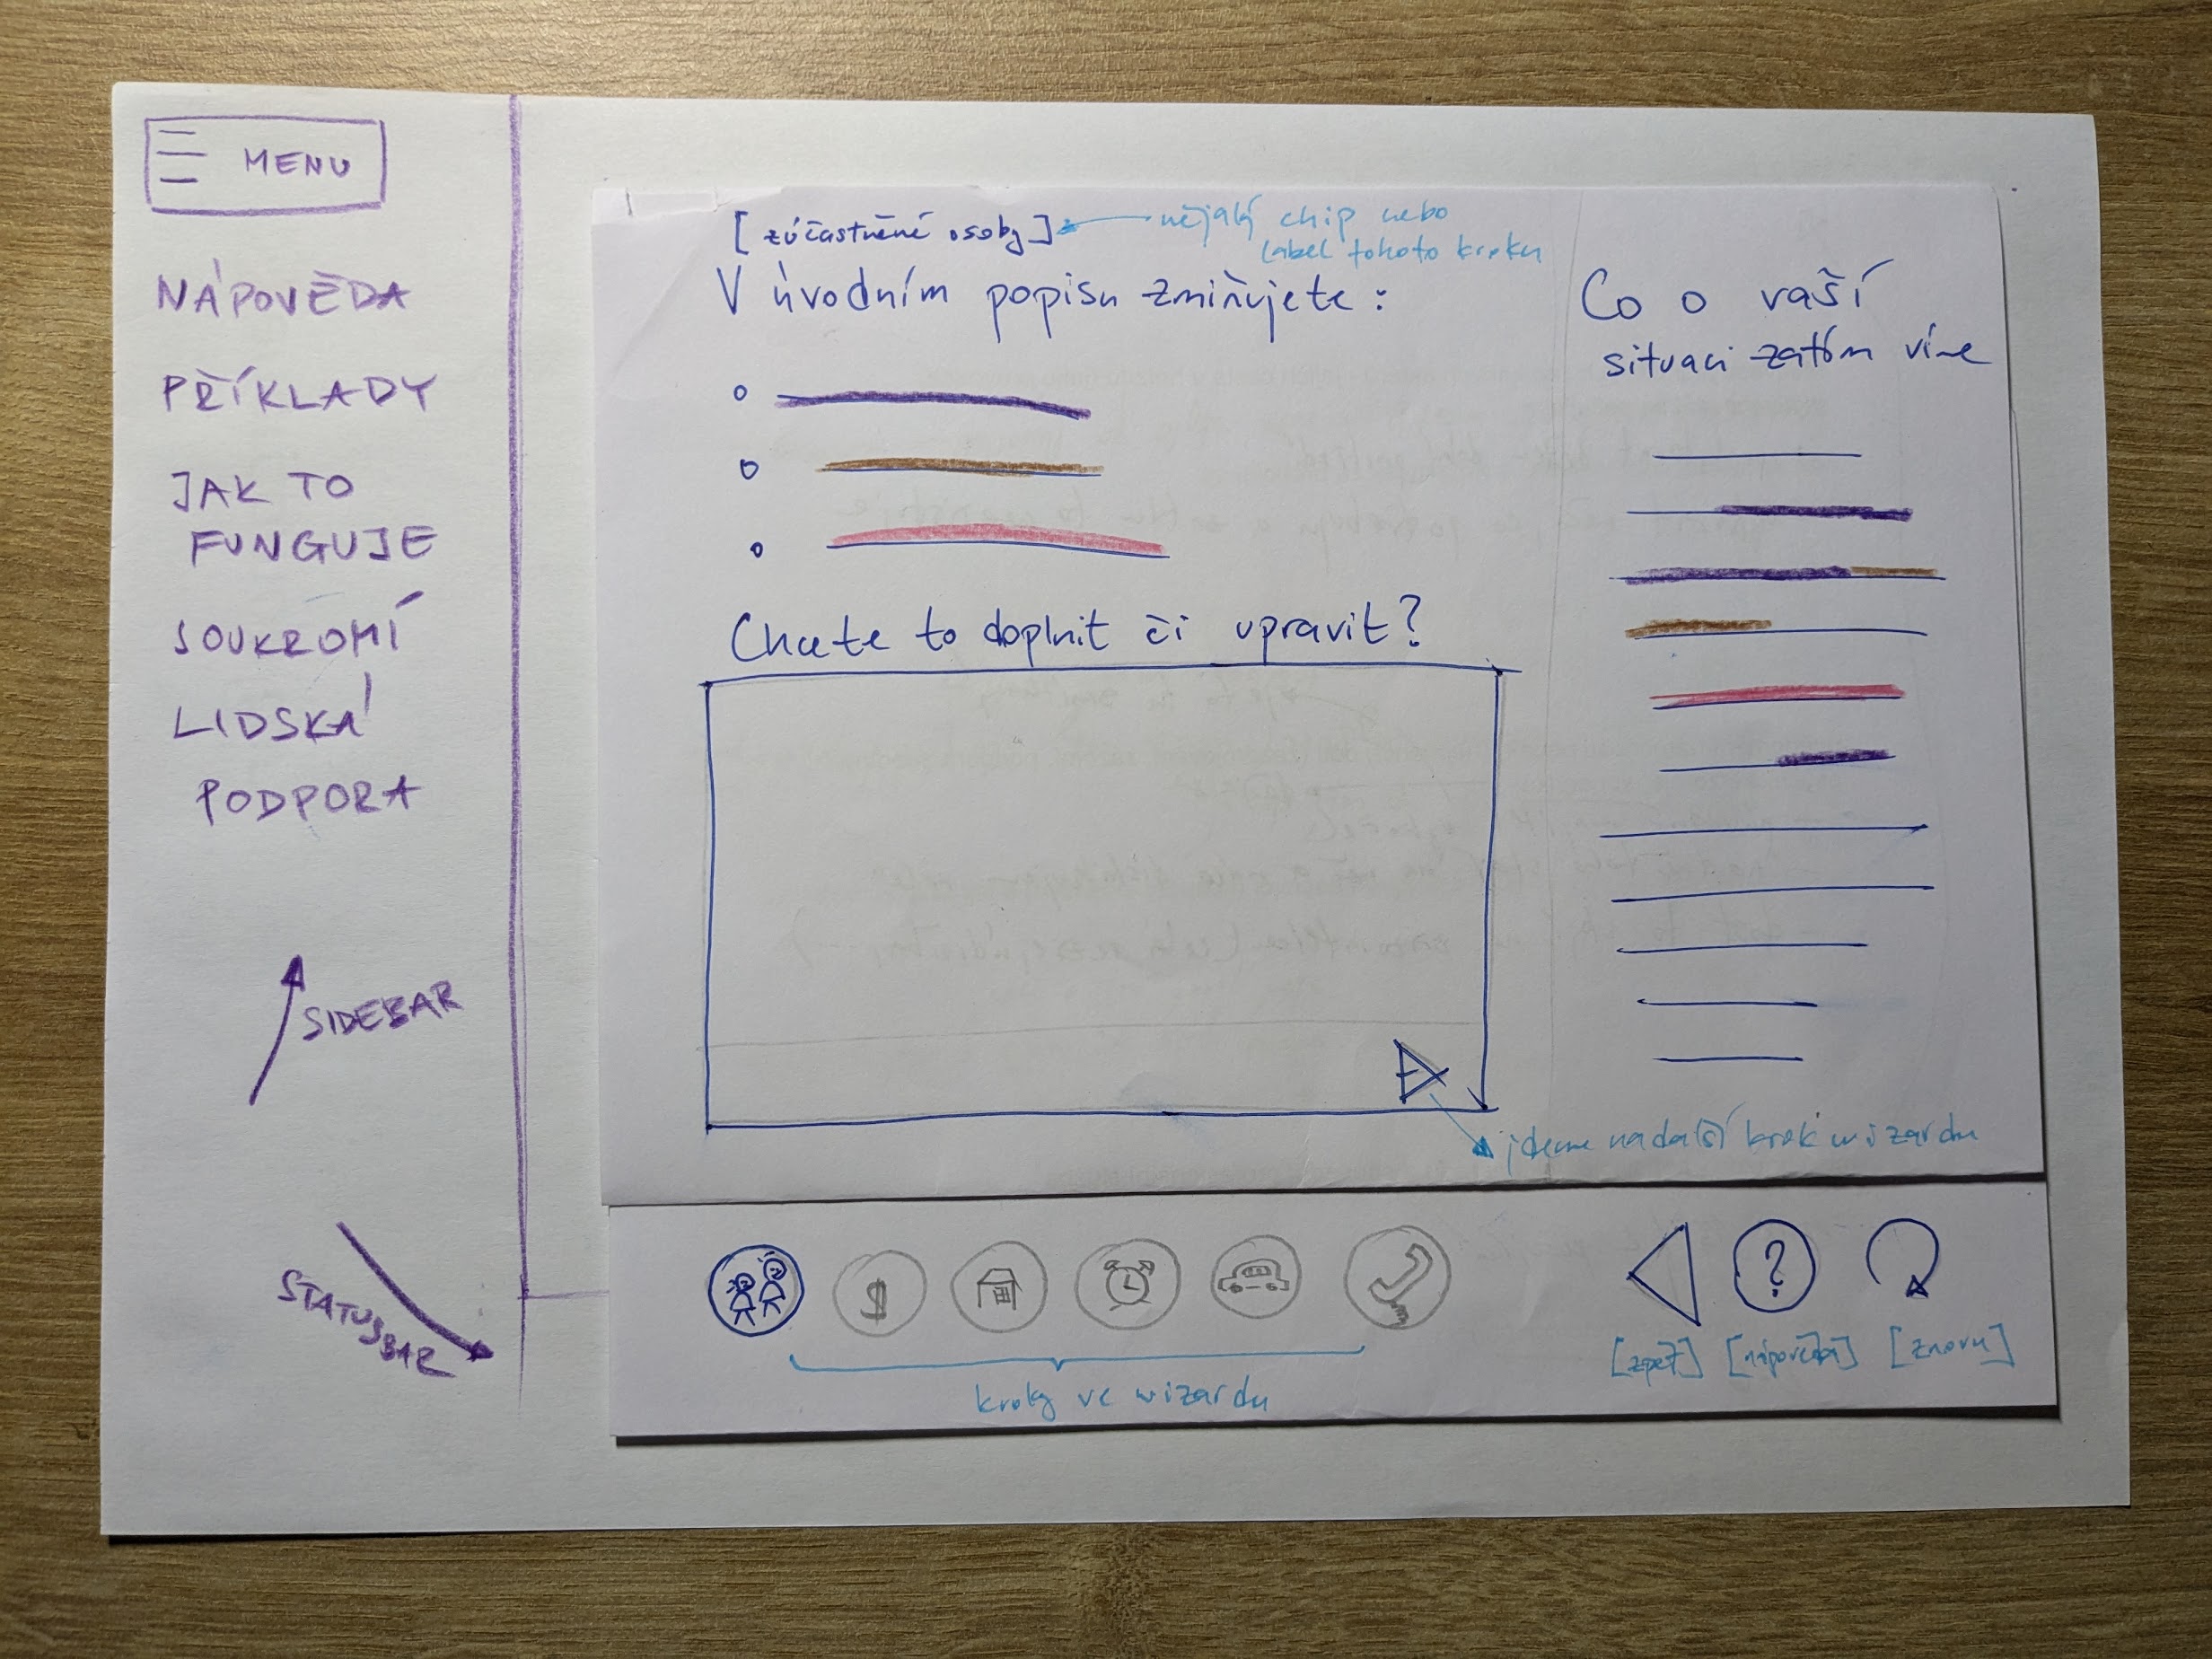 MENU
NÁPOVĚDA
PŘÍKLADY
JAK TO
FUNGUJE
SOUKROMÍ
LIDSKÁ
PODPORA
SIDEBAR
STATUSBAR
[zúčastněné osoby]
nějaký chip nebo
label tohoto kroku
V úvodním popisu zmiňujete:
Chcete to doplnit či upravit?
jdeme na další krok wizardu
Co o vaší
situaci zatím víme
$
?
[zpět] [nápověda] [znovu]
kroky ve wizardu